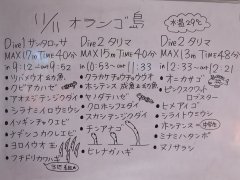 11/11 オランゴ島
水温29℃
Dive1 サンタロッサ
MAX17m TIME40分
in 9:12 → out 9:52
ツバメウオ
クビアカハゼ
アオスジテンジクダイ
シラナミイロウミウシ
イッキチャクエビ
ナデシコカクレエビ
ヨロイウオ
フチドリカワハギ
Dive2 タリマ
MAX15m TIME40分
in 10:53 → out 11:33
クラカケチョウチョウウオ
ホシテンス 成魚
ヤノダテハゼ
クロホシフエダイ
スカシテンジクダイ
チンアナゴ
ヒレナガハギ
Dive2 タリマ
MAX13m TIME48分
in 12:33 → out 12:21
オニカサゴ
ピンクスクワットロブスター
ヒメアイゴ
シライトウミウシ
ホシテンス
ミナミハタンポ
ヌノサラシ